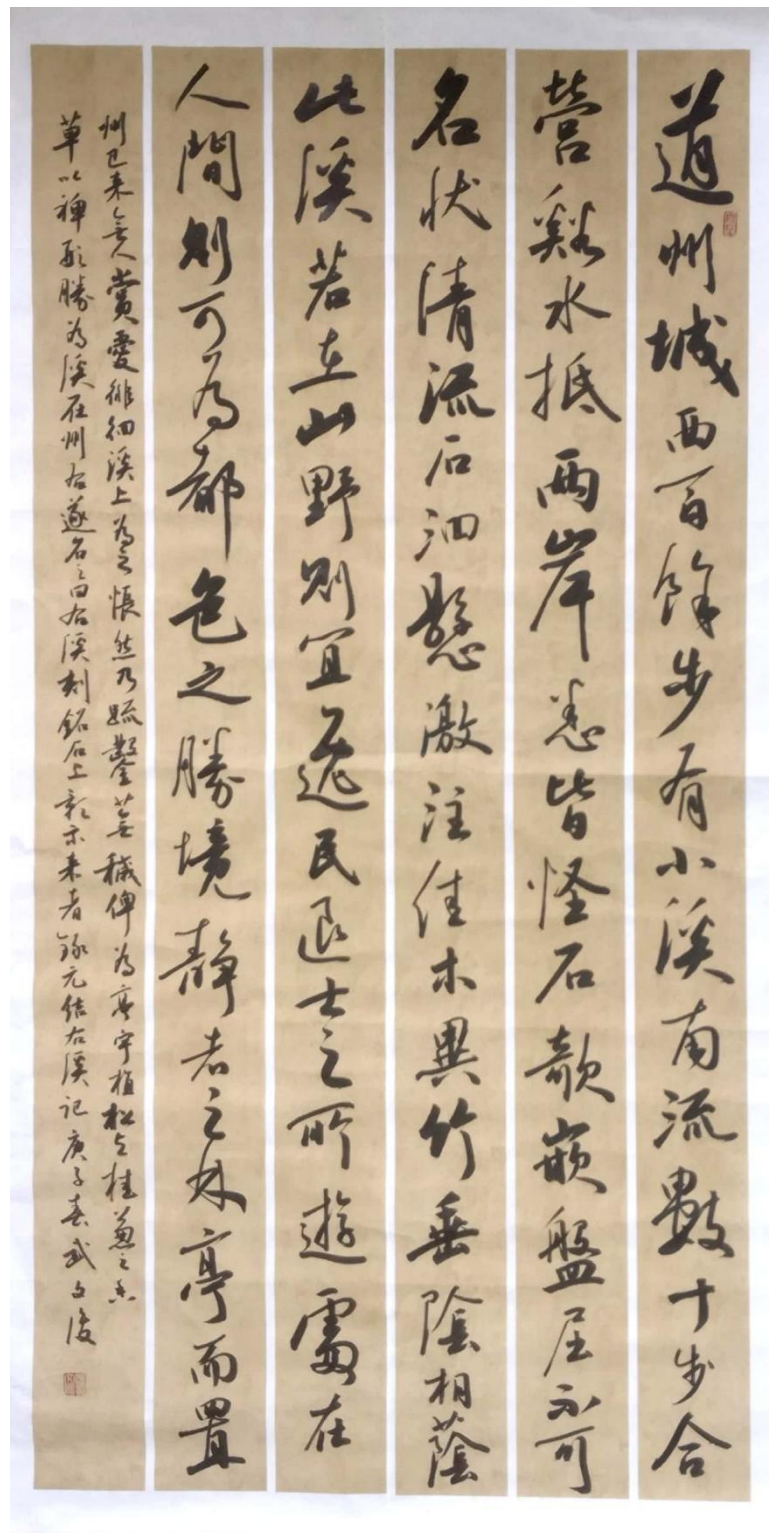 道州城西百餘步有小溪南流數十步合
營谿水抵兩岸悉皆怪石欹嵌盤屈不可
名狀清流石泗懸激注佳木異竹垂陰相蔭
此溪若在山野則宜逸民退士之所遊處在
人間則可為都邑之勝境靜者之林亭而置
州已來無人賞愛徘徊溪上為之悵然乃疏鑿蕪穢俾為亭宇植松與桂兼之香
草以裨形勝為溪在州右遂名之曰右溪刻銘石上彰示來者錄元結右溪記庚子春武文俊